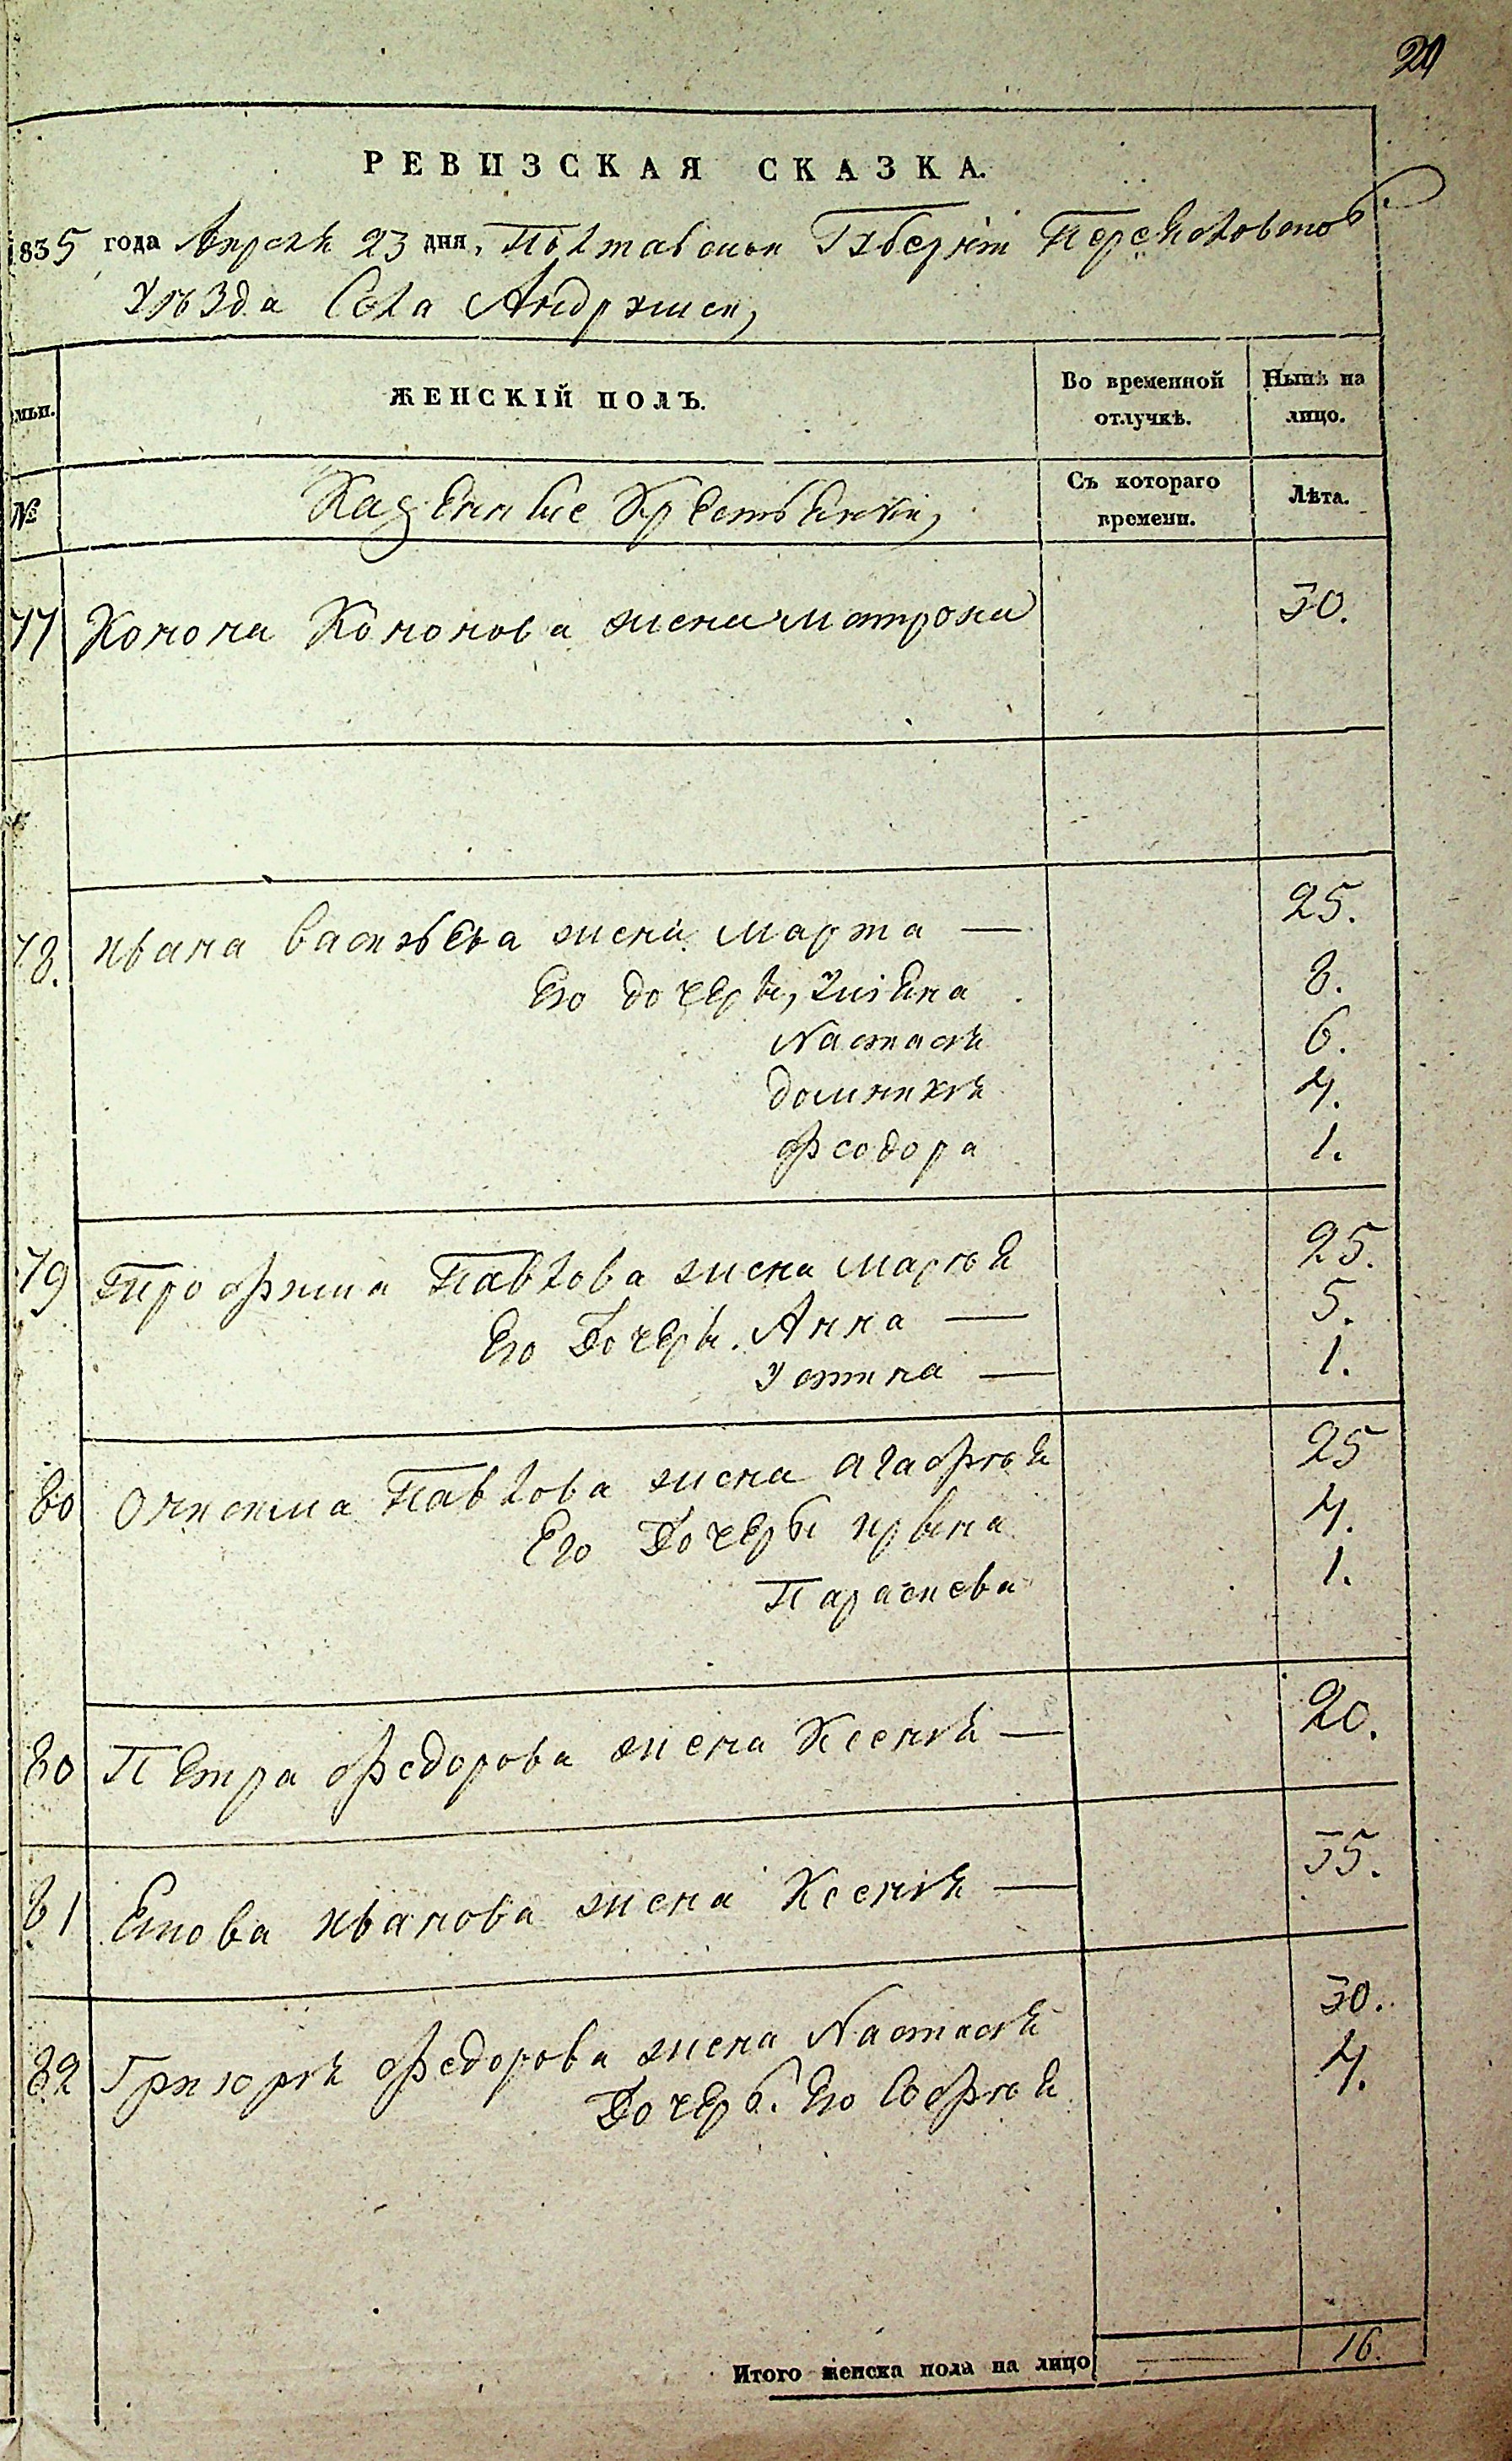 РЕВИЗСКАЯ СКАЗКА.
1835 года Апреля 23 дня, Полтавской Губернии Переяславского
уезда Села Андруши,
ЖЕНСКІЙ ПОЛЪ.
Во временной отлучкѣ.
Нынѣ на лицо.
№
Казенные Крестьянки,
Съ котораго времени.
Лѣта.
77 Конона Кононова жена матрона 30.
78. ивана васильева жена марта — 25.
Его дочеры, 8.
Настасия 6.
домникия 4.
Феодора 1.
79 Трофима Павлова жена мария 25.
Его Дочеры. Анна — 5.
Устина — 1.
80 Онисима Павлова жена агафия 25
Его Дочеры ирина 4.
Параскева 1.
80 Петра Федорова жена Ксения — 20.
81 иванова жена Ксения — 55.
82 Григория Федорова жена Настасия 30.
Дочерь Его София 4.
Итого женска пола на лицо — 16.